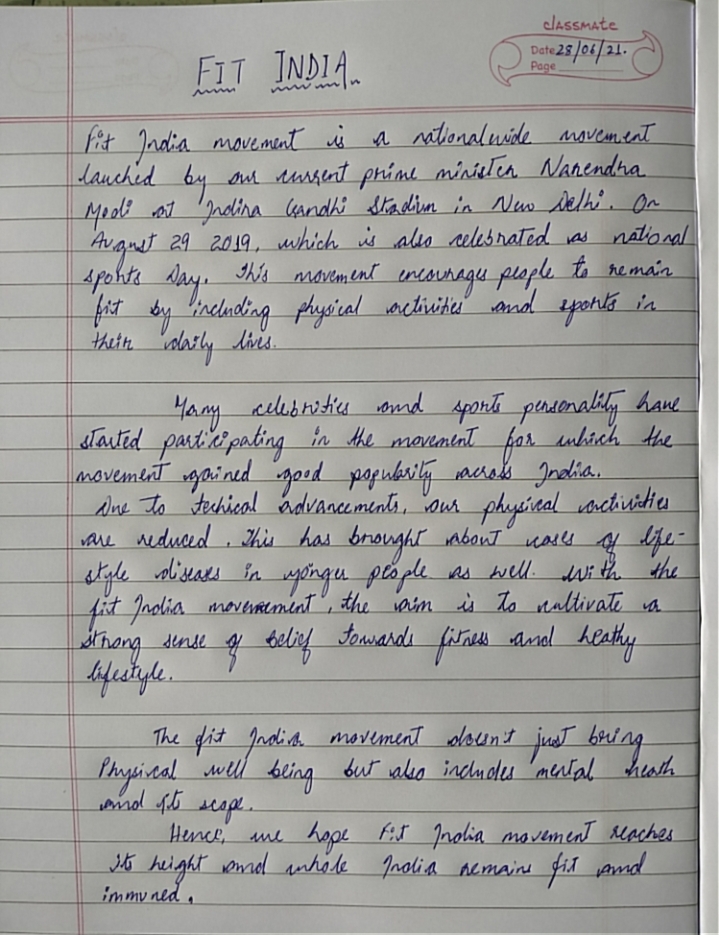 classmate
Date 28/06/21.
Page
FIT INDIA
Fit India movement is a nationalwide movement
lauched by our current prime minister Narendra
Modi at Indira Gandhi Stadium in New Delhi. On
August 29 2019, which is also celebrated as national
sports Day. This movement encourages people to remain
fit by including physical activities and sports in
their daily lives.
Many celebrities and sports personality have
started participating in the movement for which the
movement gained good popularity across India.
Due to techical advancements, our physical activities
are reduced. This has brought about cases of life-
style diseaes in yonger people as well. With the
fit India movement, the aim is to cultivate a
strong sense of belief towards fitness and heathy
lifestyle.
The fit India movement doesn't just bring
Physical well being but also includes mental heath
and its scope.
Hence, we hope Fit India movement reaches
its height and whole India remains fit and
immuned.